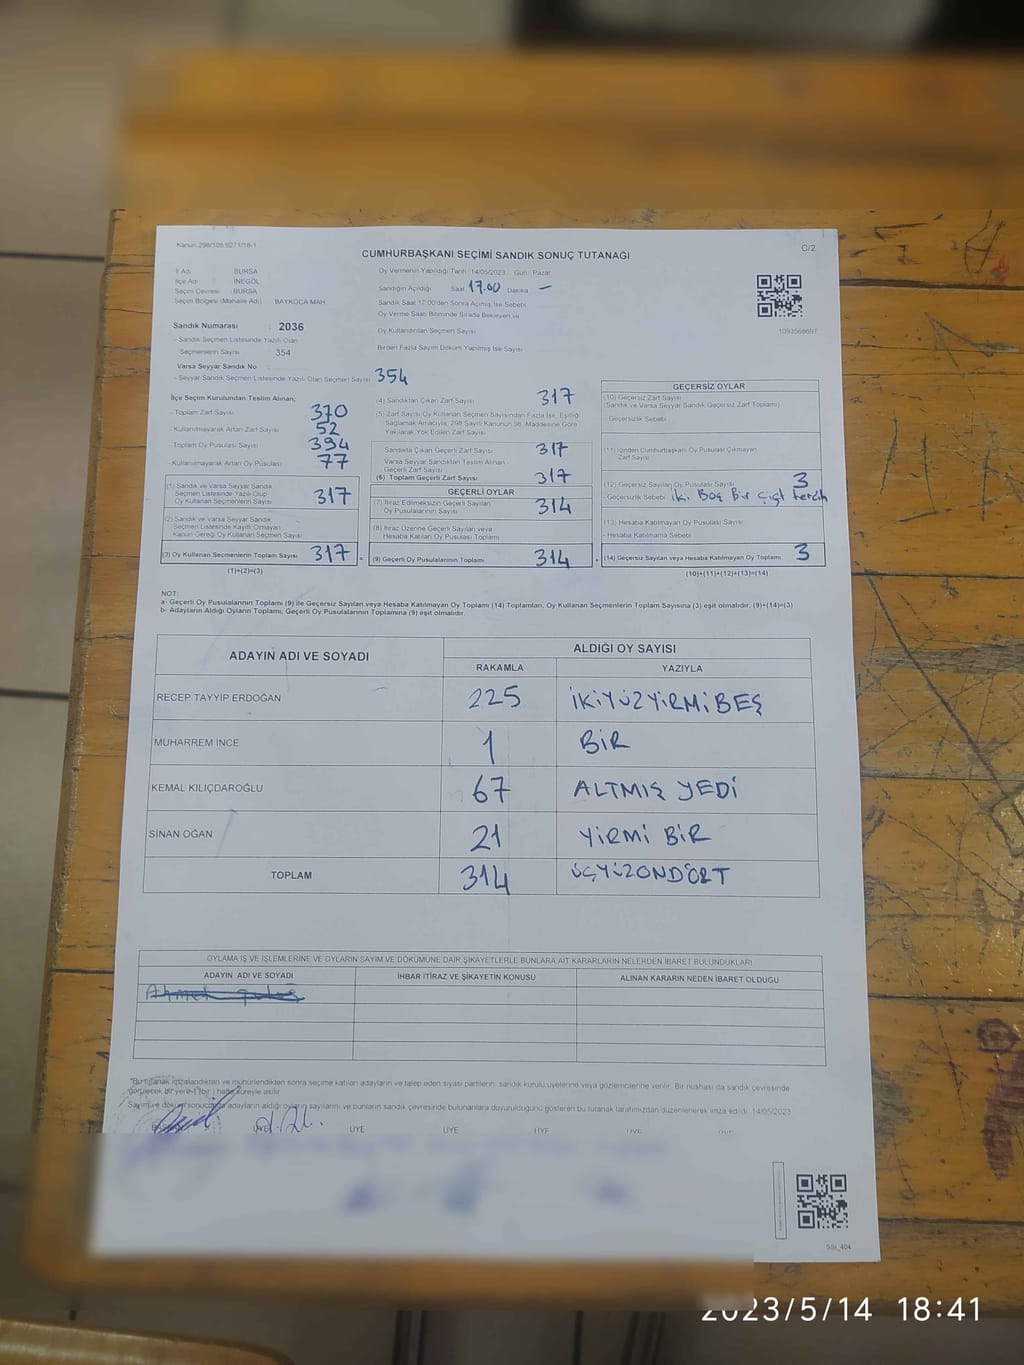 Kanun:298/105 6271/16-1
C/2
CUMHURBAŞKANI SEÇİMİ SANDIK SONUÇ TUTANAĞI
İl Adı : BURSA
İlçe Adı : İNEGÖL
Seçim Çevresi : BURSA
Seçim Bölgesi (Mahalle Adı) : BAYKOCA MAH
Sandık Numarası : 2036
- Sandık Seçmen Listesinde Yazılı Olan
Seçmenlerin Sayısı : 354
Varsa Seyyar Sandık No
- Seyyar Sandık Seçmen Listesinde Yazılı Olan Seçmen Sayısı 354
Oy Vermenin Yapıldığı Tarih : 14/05/2023 Gün : Pazar
Sandığın Açıldığı Saat 17.00 Dakika —
Sandık Saat 17:00'den Sonra Açılmış İse Sebebi
Oy Verme Saati Bitiminde Sırada Bekleyen ve
Oy Kullandırılan Seçmen Sayısı
Birden Fazla Sayım Döküm Yapılmış İse Sayısı
1093568697
İlçe Seçim Kurulundan Teslim Alınan;
- Toplam Zarf Sayısı 370
- Kullanılmayarak Artan Zarf Sayısı 52
Toplam Oy Pusulası Sayısı 394
- Kullanılmayarak Artan Oy Pusulası 77
(1) Sandık ve Varsa Seyyar Sandık
Seçmen Listesinde Yazılı Olup
Oy Kullanan Seçmenlerin Sayısı 317
(2) Sandık ve Varsa Seyyar Sandık
Seçmen Listesinde Kayıtlı Olmayan
Kanun Gereği Oy Kullanan Seçmen Sayısı
(3) Oy Kullanan Seçmenlerin Toplam Sayısı 317
(1)+(2)=(3)
(4) Sandıktan Çıkan Zarf Sayısı 317
(5) Zarf Sayısı Oy Kullanan Seçmen Sayısından Fazla İse, Eşitliği
Sağlamak Amacıyla; 298 Sayılı Kanunun 98. Maddesine Göre
Yakılarak Yok Edilen Zarf Sayısı
Sandıkta Çıkan Geçerli Zarf Sayısı 317
Varsa Seyyar Sandıktan Teslim Alınan
Geçerli Zarf Sayısı
(6) Toplam Geçerli Zarf Sayısı 317
GEÇERLİ OYLAR
(7) İtiraz Edilmeksizin Geçerli Sayılan
Oy Pusulasının Sayısı 314
(8) İtiraz Üzerine Geçerli Sayılan veya
Hesaba Katılan Oy Pusulası Toplamı
(9) Geçerli Oy Pusulalarının Toplamı 314
GEÇERSİZ OYLAR
(10) Geçersiz Zarf Sayısı
(Sandık ve Varsa Seyyar Sandık Geçersiz Zarf Toplamı)
Geçersizlik Sebebi
(11) İçinden Cumhurbaşkanı Oy Pusulası Çıkmayan
Zarf Sayısı
(12) Geçersiz Sayılan Oy Pusulası Sayısı 3
- Geçersizlik Sebebi İki Boş Bir çift tercih
(13) Hesaba Katılmayan Oy Pusulası Sayısı
- Hesaba Katılmama Sebebi
(14) Geçersiz Sayılan veya Hesaba Katılmayan Oy Toplamı 3
(10)+(11)+(12)+(13)=(14)
NOT:
a- Geçerli Oy Pusulalarının Toplamı (9) ile Geçersiz Sayılan veya Hesaba Katılmayan Oy Toplamı (14) Toplamları, Oy Kullanan Seçmenlerin Toplam Sayısına (3) eşit olmalıdır. (9)+(14)=(3)
b- Adayların Aldığı Oyların Toplamı, Geçerli Oy Pusulalarının Toplamına (9) eşit olmalıdır.
ADAYIN ADI VE SOYADI ALDIĞI OY SAYISI
RAKAMLA YAZIYLA
RECEP TAYYİP ERDOĞAN 225 İKİYÜZYİRMİBEŞ
MUHARREM İNCE 1 BİR
KEMAL KILIÇDAROĞLU 67 ALTMIŞ YEDİ
SİNAN OĞAN 21 YİRMİ BİR
TOPLAM 314 ÜÇYÜZONDÖRT
OYLAMA İŞ VE İŞLEMLERİNE VE OYLARIN SAYIM VE DÖKÜMÜNE DAİR ŞİKAYETLERLE BUNLARA AİT KARARLARIN NELERDEN İBARET BULUNDUKLARI
ADAYIN ADI VE SOYADI İHBAR İTİRAZ VE ŞİKAYETİN KONUSU ALINAN KARARIN NEDEN İBARET OLDUĞU
Ahmet
"Bu tutanak imzalandıktan ve mühürlendikten sonra seçime katılan adayların ve talep eden siyasi partilerin, sandık kurulu üyelerine veya gözlemcilerine verilir. Bir nüshası da sandık çevresinde
görülecek bir yere (1 bir) hafta süreyle asılır.
Sayım ve döküm sonucunda adayların aldığı oyların sayılarını ve bunların sandık çevresinde bulunanlara duyurulduğunu gösteren bu tutanak tarafımızdan düzenlenerek imza edildi. 14/05/2023
ÜYE ÜYE ÜYE ÜYE
SSI_404
2023/5/14 18:41